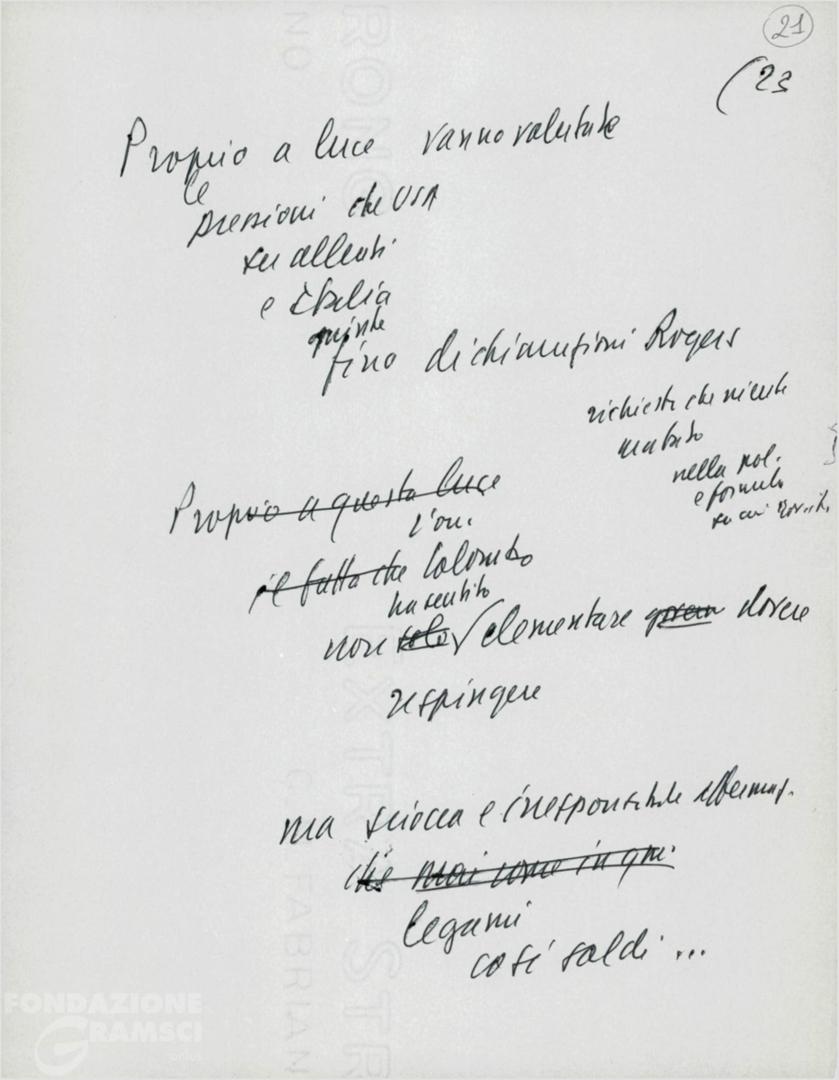 21
(23
Proprio a luce vanno valutate
le
pressioni che USA
su alleati
e Italia
fino dichiarazioni Rogers
richiesta che niente
mutato
nella pol.
e formula
su cui
Proprio a questa luce
l'on.
il fatto che Colombo
ha sentito
non solo √ elementare dovere
respingere
ma sciocca e irresponsabile affermaz.
che mai come in que.
legami
così saldi ...
FONDAZIONE
GRAMSCI
onlus
EXTRA STR
FABRIAN